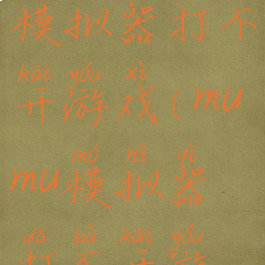 模拟器打不
kāi yóu xì
开游戏(mu
mó nǐ qì
mu模拟器
dǎ bù kāi yóu
打不开游